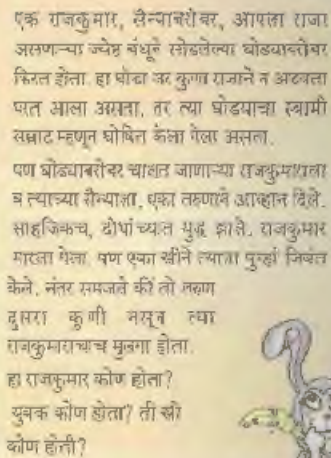 एक राजकुमार, सैन्याबरोबर, आपला राजा
असणाऱ्या ज्येष्ठ बंधूने सोडलेल्या घोड्याबरोबर
फिरत होता. हा घोडा जर कुणा राजाने न अडवता
परत आला असता, तर त्या घोडयाचा स्वामी
सम्राट म्हणून घोषित केला गेला असता.
पण घोड्याबरोबर चालत जाणाऱ्या राजकुमाराला
व त्याच्या सैन्याला, एका तरुणाने आव्हान दिले.
साहजिकच, दोघांच्यात युद्ध झाले. राजकुमार
मारला गेला. पण एका स्त्रीने त्याला पुन्हा जिवंत
केले. नंतर समजले की तो तरुण
दुसरा कुणी नसून त्या
राजकुमाराचाच मुलगा होता.
हा राजकुमार कोण होता?
युवक कोण होता? ती स्त्री
कोण होती?